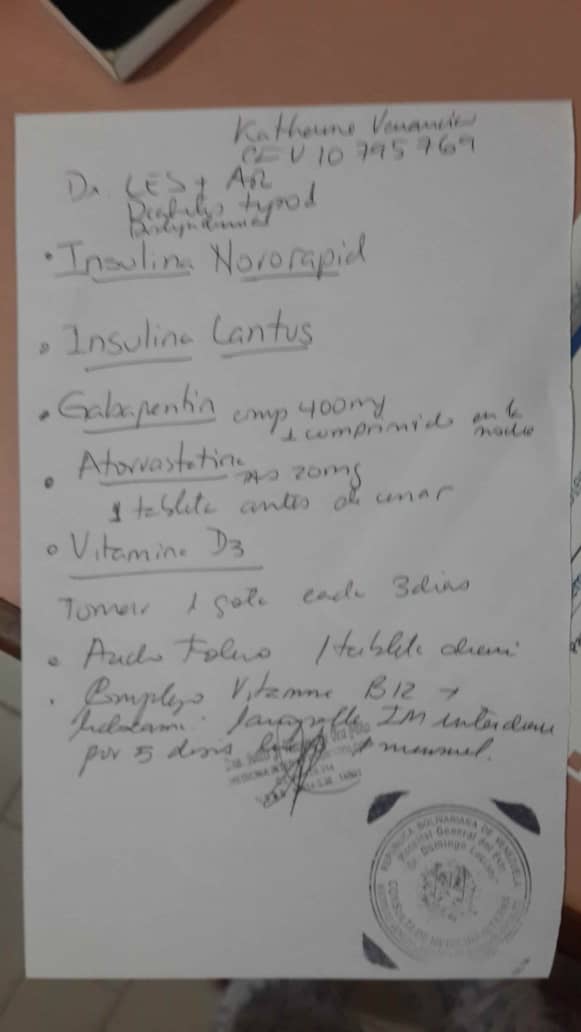 Katherine Venancio
CE V 10 795 769
Dx LES + AR
Diabetes tipo d
Dislipidemia
• Insulina Novorapid
• Insulina Lantus
• Gabapentin comp 400mg
1 comprimido en la noche
• Atorvastatina 20mg
1 tableta antes de cenar
• Vitamina D3
Tomar 1 gota cada 3 dias
• Acido Folico 1 tableta diaria
• Complejo Vitamina B12 +
1 ampolla IM interdiaria
por 5 dosis mensual.
REPUBLICA BOLIVARIANA DE VENEZUELA
Hospital General del Este
Dr. Domingo Luciani